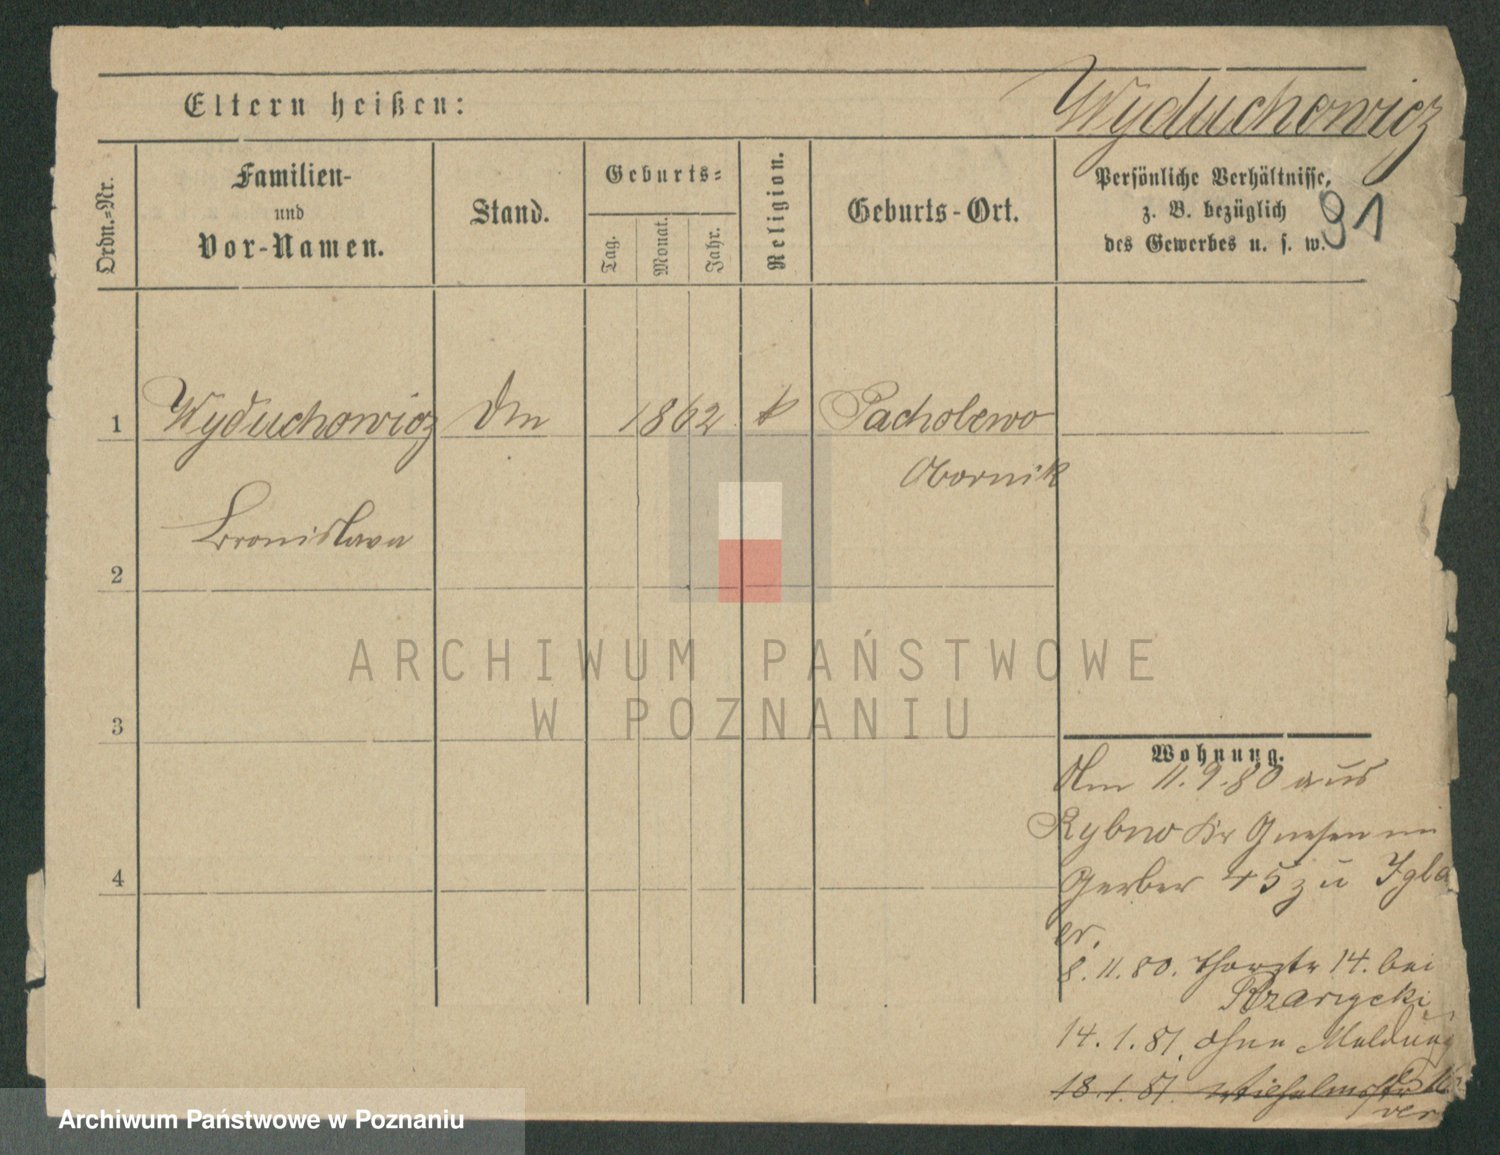 Eltern heißen:
Wyduchowicz
Ordn.=Nr.
Familien-
und
Vor-Namen.
Stand.
Geburts=
Tag.
Monat.
Jahr.
Religion.
Geburts-Ort.
Persönliche Verhältnisse,
z. B. bezüglich
des Gewerbes u. s. w.
91
1 Wyduchowicz 1862 k Pacholewo
Obornik
Bronislawa
2
3
4
Wohnung.
Am 11.9.80 aus
Rybno Kr Gnesen
Gerber 45 zu Igla
er.
8.11.80. 14. bei
14.1.81. ohne Meldung
18.1.81. Wilhelmstr
ver
ARCHIWUM PAŃSTWOWE
W POZNANIU
Archiwum Państwowe w Poznaniu